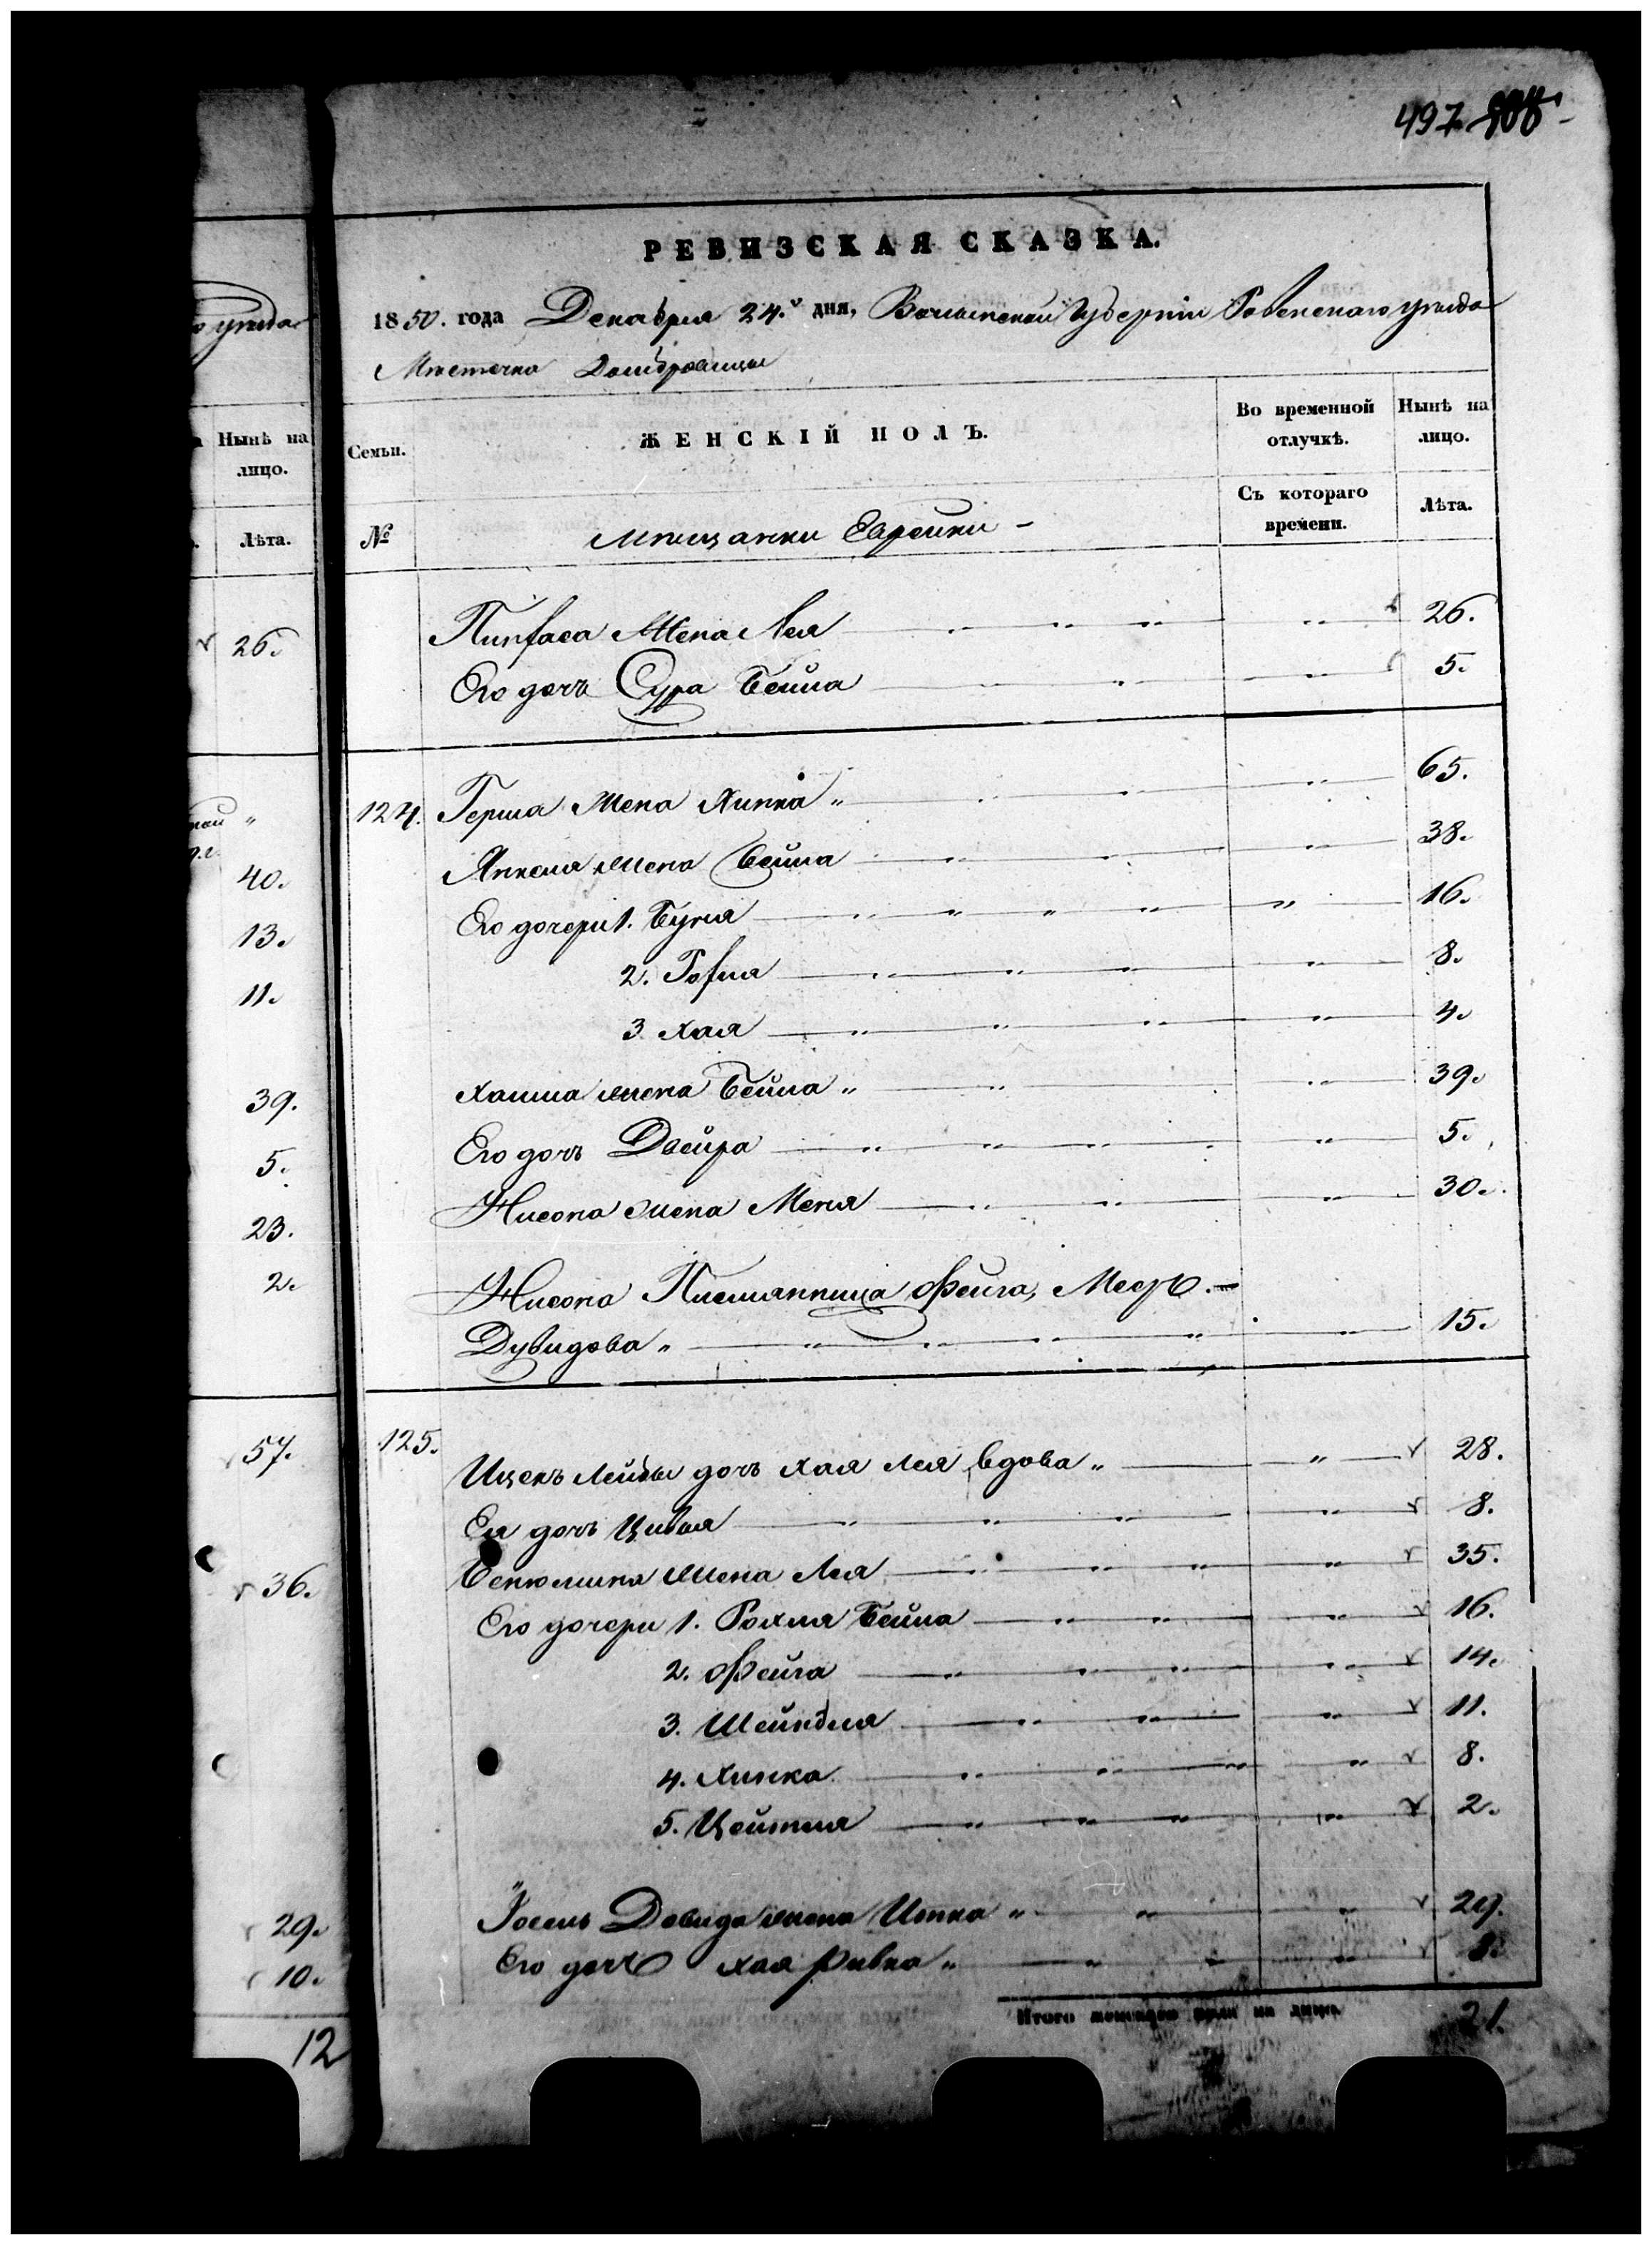 497
РЕВИЗСКАЯ СКАЗКА.
1850. года Декабря 24.го дня, Волынской Губерніи Ровенскаго уѣзда
Мѣстечка Домбровицы
уѣзда
Нынѣ на лицо.
Лѣта.
Семьи.
ЖЕНСКІЙ ПОЛЪ.
Во временной отлучкѣ.
Нынѣ на лицо.
№
Мѣщанки Еврейки -
Съ котораго времени.
Лѣта.
26.
40.
13.
11.
39.
5.
23.
2.
57.
36.
29.
10.
12
Пинхаса Жена Лея 26.
Его дочь Сура Бейла 5.
124. Герша Жена Химка 65.
Янкеля жена Бейла 38.
Его дочери 1. Буня 16.
2. Гофля 8.
3 Хая 4.
Хаима жена Бейла 39.
Его дочь Двейра 5.
Нисона жена Меня 30.
Нисона Племянница Фейга, Меер
Дувидова 15.
125. Ицекъ Лейбы дочь Хая Лея вдова 28.
Ея дочь Цивья 8.
Бенюмина жена Лея 35.
Его дочери 1. Рохля Бейла 16.
2. Фейга 14.
3. Шейндля 11.
4. Химка 8.
5. Цейтля 2.
Іосель Довида жена Итка 29.
Его дочь Хая Ривка 8.
Итого женскаго пола на лицо 21.